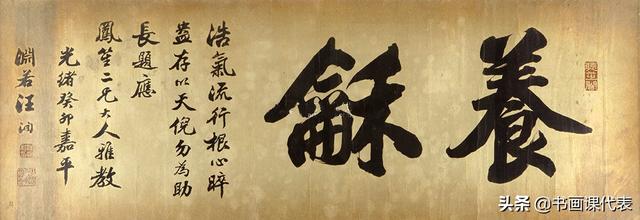 養龢
浩氣流行根心睟
盎存以天倪勿為助
長題應
鳳笙二兄大人雅教
光緒癸卯嘉平
淵若汪洵
头条 @书画课代表